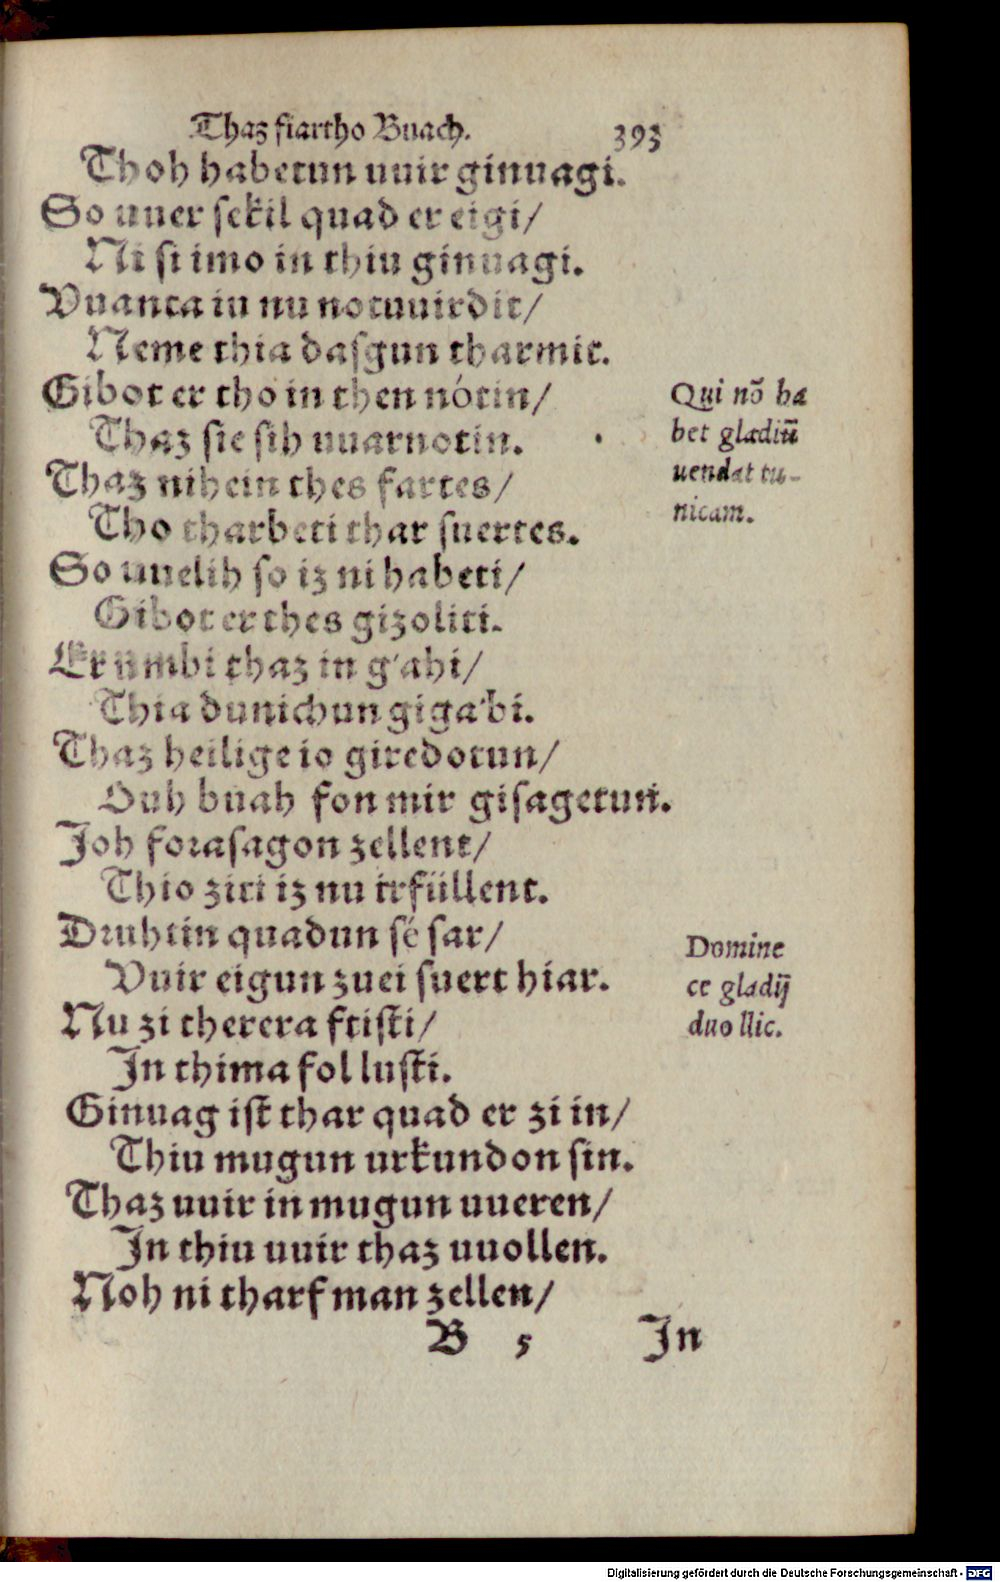 Thaz fiartho Buach. 393
Thoh habetun uuir ginuagi.
So uuer sekil quad er eigi/
Ni si imo in thiu ginuagi.
Vuanta iu nu notuuirdit/
Neme thia dasgun tharmit.
Gibot er tho in then nótin/
Thaz sie sih uuarnotin.
Thaz nihein thes fartes/
Tho tharbeti thar suertes.
So uuelih so iz ni habeti/
Gibot er thes gizoliti.
Er umbi thaz in g'ahi/
Thia dunichun giga'bi.
Thaz heilige io giredotun/
Ouh buah fon mir gisagetun.
Joh forasagon zellent/
Thio ziti iz nu irfüllent.
Druhtin quadun sé sar/
Vuir eigun zuei suert hiar.
Nu zi therera ftisti/
In thima fol lusti.
Ginuag ist thar quad er zi in/
Thiu mugun urkundon sin.
Thaz uuir in mugun uueren/
In thiu uuir thaz uuollen.
Noh ni tharf man zellen/
B 5 In
Qui nõ ha
bet gladiũ
uendat tu-
nicam.
Domine
ce gladij
duo llic.
Digitalisierung gefördert durch die Deutsche Forschungsgemeinschaft - DFG